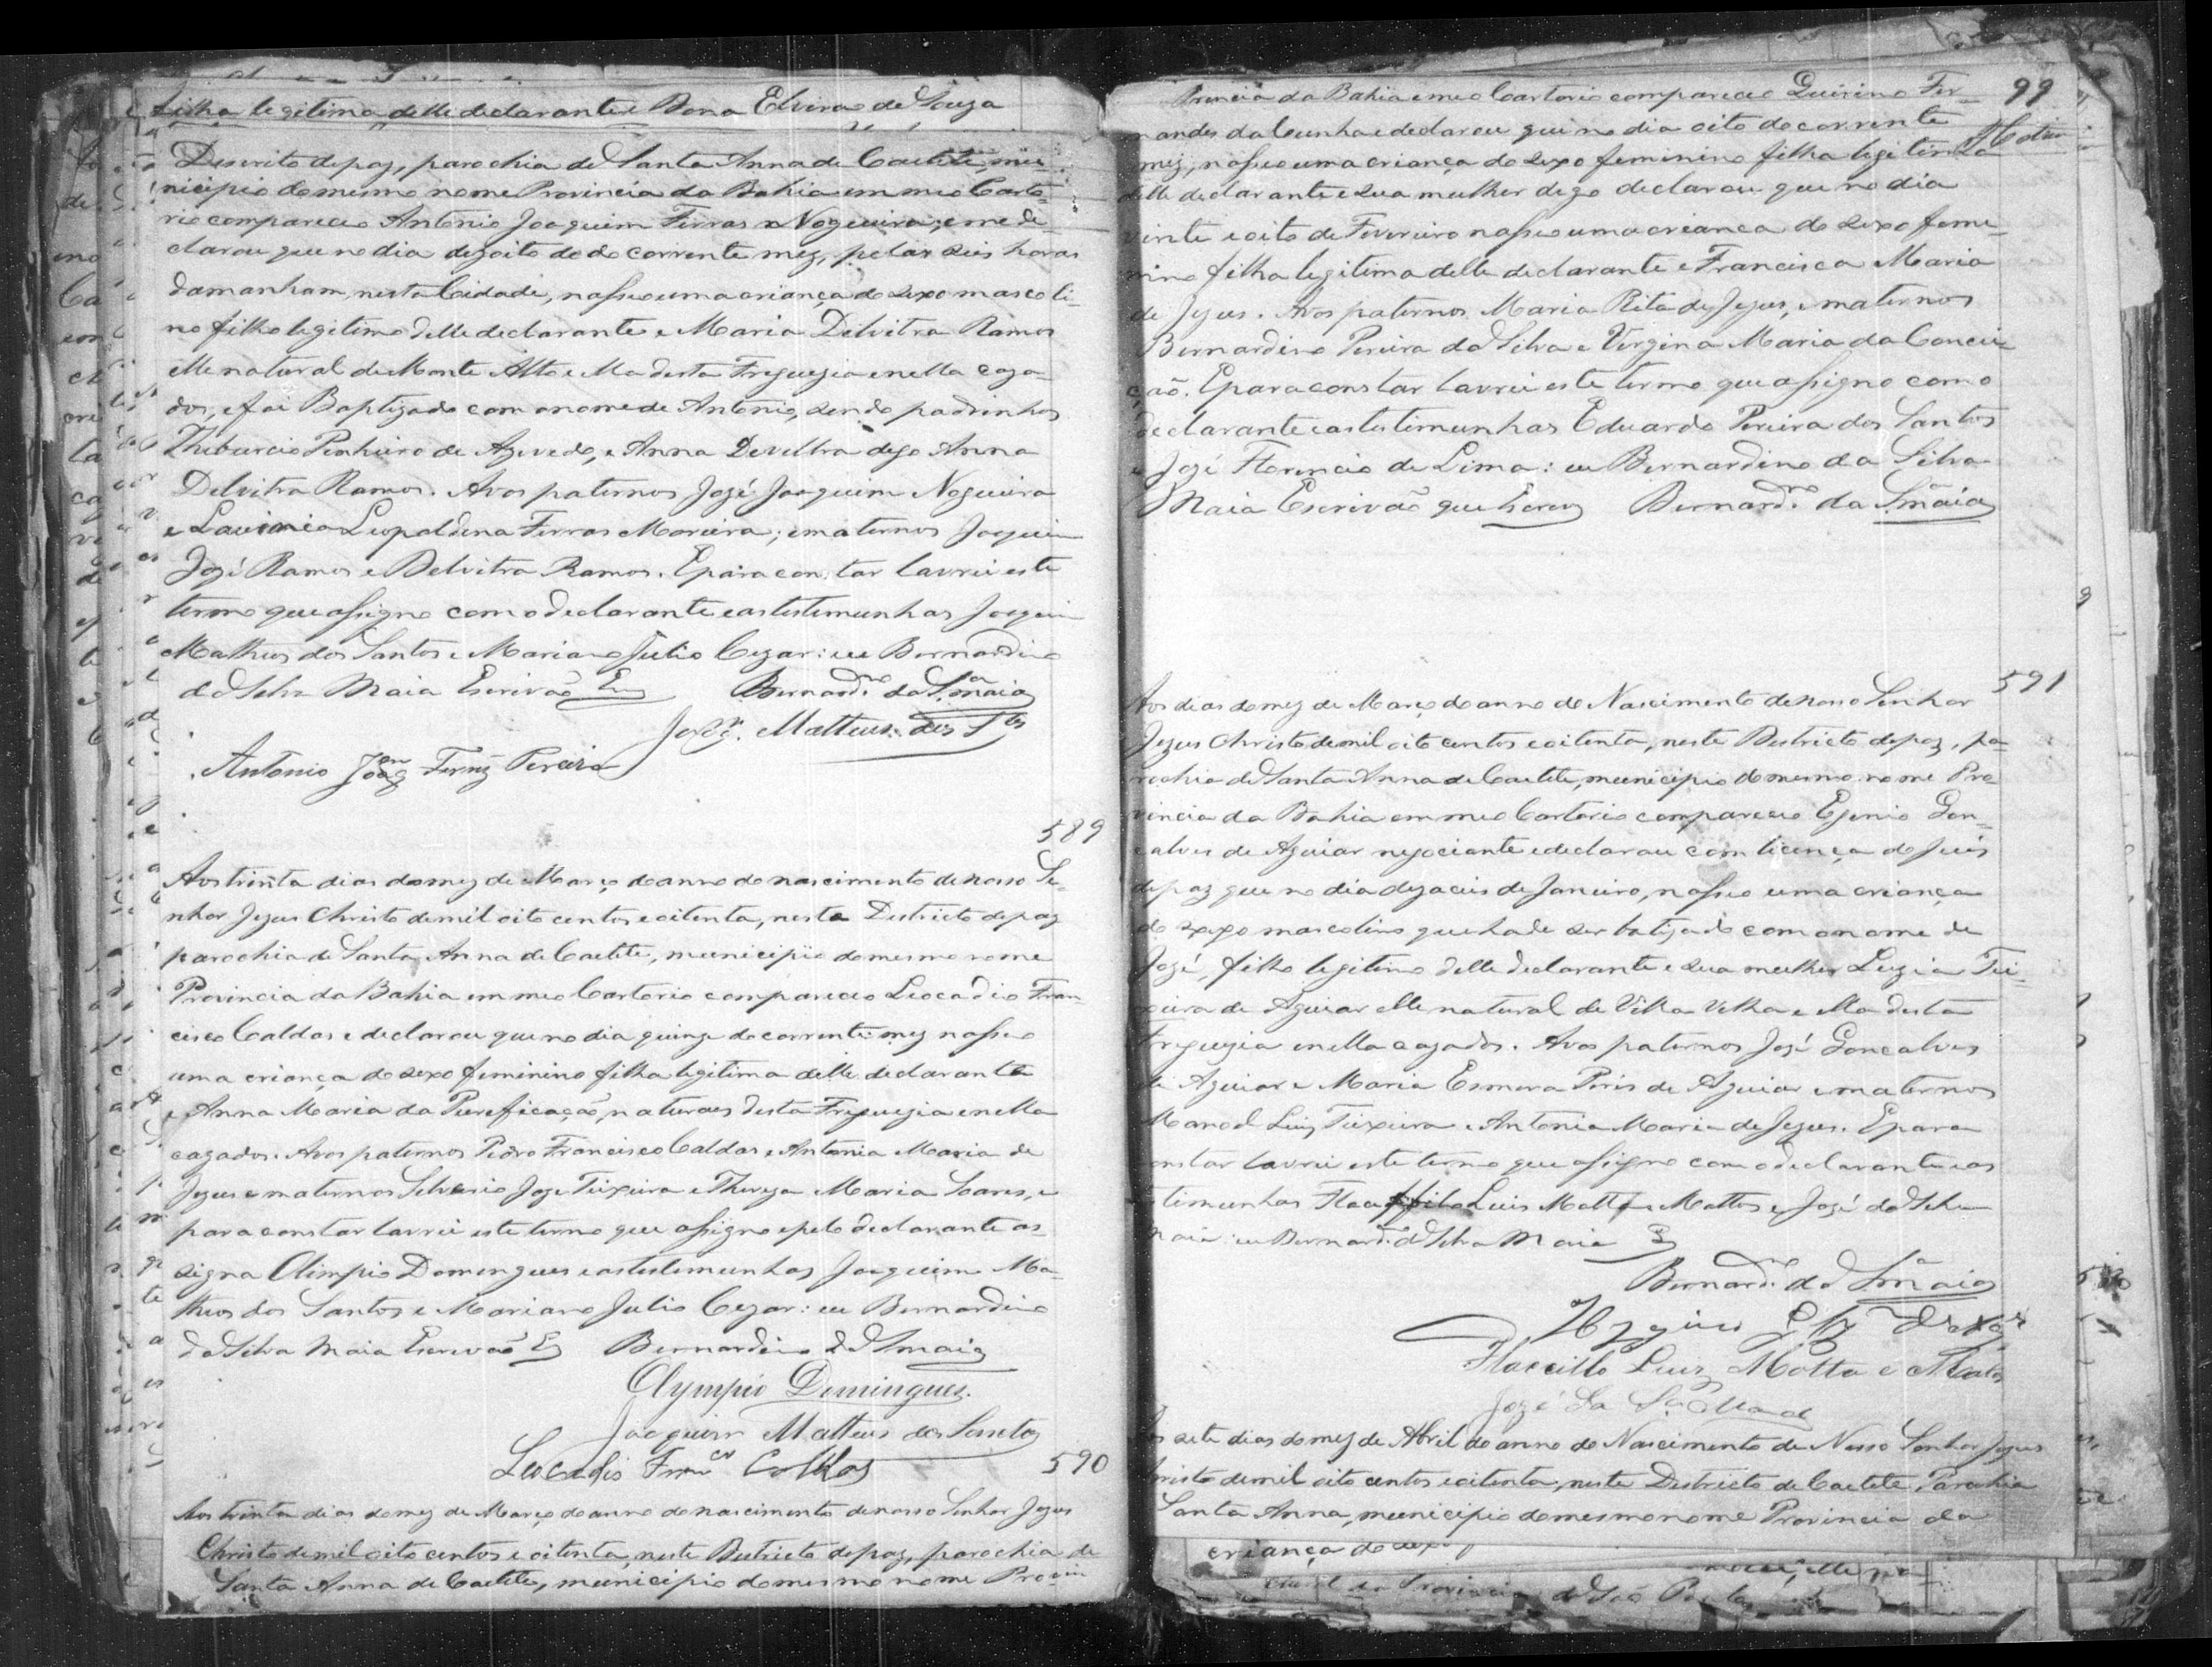 filha legitima delle declarante e Dona Elvira de Souza
Descrito de paz, parochia de Santa Anna de Caetete, mu-
nicipio do mesmo nome Provincia da Bahia em meo Carto-
rio compareceo Antonio Joaquim Ferras Nogueira, e me de-
clarou que no dia dezoito do do corrente mez, pelas seis horas
da manham, nesta Cidade, nasseo uma criança do sexo mascoli-
no filho legitimo delle declarante e Maria Delvitra Ramos
elle natural de Monte Alto e ella desta Freguezia e nella caza-
dos, e foi Baptizado com o nome de Antonio, sendo padrinhos
Thiburcio Pinheiro de Azevedo, e Anna Develtra digo Anna
Delvitra Ramos. Avos paternos José Joaquim Nogueira
e Leopoldina Ferras Moreira; e maternos Joaquim
José Ramos e Delvitra Ramos. E para constar lavrei este
termo que assigno com o declarante e as testemunhas Joaquim
Matheus dos Santos e Mariano Julio Cezar: eu Bernardino
da Silva Maia Escrivão Bernard.no da S.a Maia
Matteus dos S.tos
Antonio Joaq.m Pereira
589
Aos trinta dias do mez de Março do anno do nascimento de nosso Se-
nhor Jezus Christo de mil oito centos e oitenta, nesta Destricto de paz
parochia de Santa Anna de Caetete, municipio do mesmo nome
Provincia da Bahia em meo Cartorio compareceo Leocadio Fran-
cisco Caldas e declarou que no dia quinze do corrente mez nasseo
uma criança do sexo feminino filha legitima delle declarante
e Anna Maria da Pureficação, naturaes desta Freguezia e nella
cazados. Avos paternos Pedro Francisco Caldas e Antonia Maria de
Jezus e maternos Silverio Joze Teixeira e Thereza Maria Soares, e
para constar lavrei este termo que assigno e pelo declarante as-
signa Olimpio Domingues e as testemunhas Joaquim Ma-
theus dos Santos e Mariano Julio Cezar: eu Bernardino
da Silva Maia Escrevão Bernardino da S Maia
Olympio Domingues.
Joaquim Matteus dos Santos
Leocadio Fran.co Caldas
590
Aos trinta dias do mez de Março do anno do nascimento de nosso Senhor Jezus
Christo de mil oito centos e oitenta, neste Destricto de paz, parochia de
Santa Anna de Caetete, municipio do mesmo nome Provin
99
vincia da Bahia em meo Cartorio compareceo Quirino Fer-
nandes da Cunha e declarou que no dia oito do corrente
mez, nasseo uma criança do sexo feminino filha legitima
delle declarante e sua mulher digo declarou que no dia
vinte e oito de Fevereiro nasseo uma crianca do sexo feme-
nino filha legitima delle declarante e Francisca Maria
de Jezus. Avos paternos Maria Rita de Jezus, e maternos
Bernardino Pereira da Silva e Vergina Maria da Concei-
ção. E para constar lavrei este termo que assigno com o
declarante e as testemunhas Eduardo Pereira dos Santos
e José Florencio de Lima: eu Bernardino da Silva
Maia Escrivão que Escrevy Bernard.no da S.a Maia
591
Aos dias do mez de Março do anno do Nascimento de nosso Senhor
Jezus Christo de mil oito centos e oitenta, neste Destricto de paz, pa-
rochia de Santa Anna de Caetete, municipio do mesmo nome Pro-
vincia da Bahia em meo Cartorio compareceo Egenio Gon-
calves de Aguiar negociante e declarou com licença do Juis
de paz que no dia dezaceis de Janeiro, nasseo uma criança
do sexo mascolino que hade ser batizado com o nome de
José, filho legitimo delle declarante e sua mulher Luzia Tei-
xeira de Aguiar elle natural de Villa Velha e ella desta
Freguezia e nella cazados. Avos paternos José Goncalves
de Aguiar e Maria Esmera Piris de Aguiar e maternos
Manoel Luiz Teixeira e Antonia Maria de Jezus. E para
constar lavrei este termo que assigno com o declarante e as
testemunhas Luis Motta e Mattos e José da Silva
Maia: eu Bernard.no da Silva Maia
Bernard.no da S.a Maia
Luiz Motta e Mattos
José da S.a
Aos sete dias do mez de Abril do anno do Nascimento de Nosso Senhor Jezus
Christo de mil oito centos e oitenta, neste Destricto de Caetete, Parochia
Santa Anna, municipio do mesmo nome Provincia da
criança do sexo